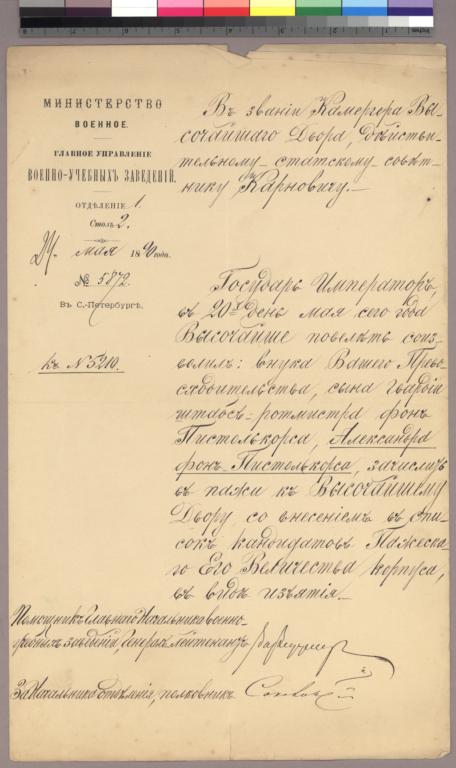 МИНИСТЕРСТВО
ВОЕННОЕ.
ГЛАВНОЕ УПРАВЛЕНІЕ
ВОЕННО-УЧЕБНЫХЪ ЗАВЕДЕНІЙ.
ОТДѢЛЕНІЕ 1
Столъ 2.
24 мая 1890 года.
№ 5872.
Въ С.-Петербургѣ.
къ № 5210.
Въ званіи Камергера Вы-
сочайшаго Двора, дѣйстви-
тельному статскому совѣт-
нику Карновичу.
Государь Императоръ,
въ 20й день мая сего года
Высочайше повелѣть соиз-
волилъ: внука Вашего Прево-
сходительства, сына гвардіи
штабсъ-ротмистра фонъ
Пистолькорса, Александра
фонъ-Пистолькорса, зачислить
въ пажи къ Высочайшему
Двору, со внесеніемъ въ спи-
сокъ кандидатовъ Пажеска-
го Его Величества корпуса,
въ видѣ изъятія.
Помощникъ Главнаго Начальника военно-
учебныхъ заведеній, Генералъ-Лейтенантъ
За Начальника отдѣленія, полковникъ